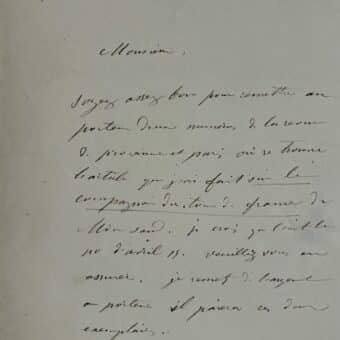 Monsieur,
Soyez assez bon pour remettre au
porteur deux numéros de la revue
de province et paris où se trouve
l'article que j'ai fait sur le
compagnon du tour de france de
Mme Sand. je crois que c'est le
no d'avril veuillez vous en
assurer. je remets de l'argent
au porteur il paiera ces deux
exemplaires.